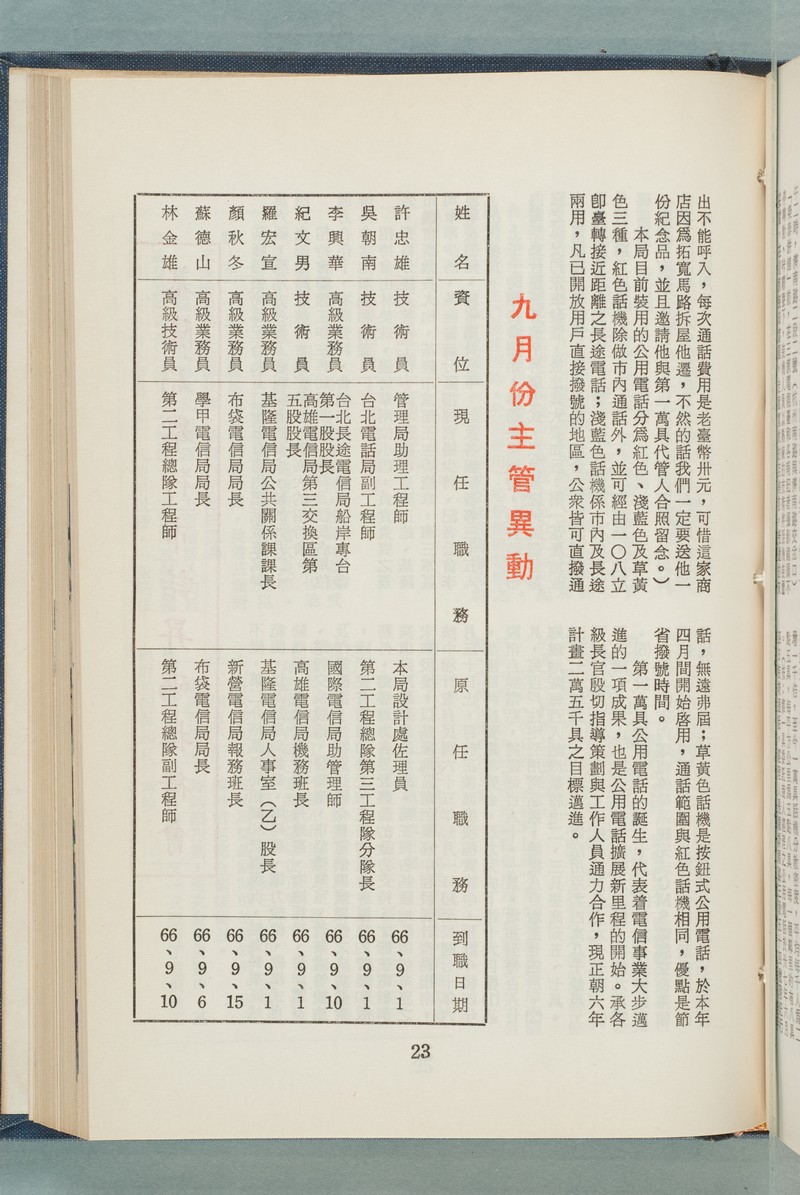 出不能呼入，每次通話費用是老臺幣卅元，可惜這家商
店因爲拓寬馬路拆屋他遷，不然的話我們一定要送他一
份紀念品，並且邀請他與第一萬具代管人合照留念。）
本局目前裝用的公用電話分爲紅色、淺藍色及草黃
色三種，紅色話機除做市內通話外，並可經由一〇八立
卽臺轉接近距離之長途電話；淺藍色話機係市內及長途
兩用，凡已開放用戶直接撥號的地區，公衆皆可直撥通
話，無遠弗屆；草黃色話機是按鈕式公用電話，於本年
四月間開始啓用，通話範圍與紅色話機相同，優點是節
省撥號時間。
第一萬具公用電話的誕生，代表着電信事業大步邁
進的一項成果，也是公用電話擴展新里程的開始。承各
級長官殷切指導策劃與工作人員通力合作，現正朝六年
計畫二萬五千具之目標邁進。
九月份主管異動
姓名 資位 現任職務 原任職務 到職日期
許忠雄 技術員 管理局助理工程師 本局設計處佐理員 66、9、1
吳朝南 技術員 台北電話局副工程師 第二工程總隊第三工程隊分隊長 66、9、1
李興華 高級業務員 台北長途電信局船岸專台
第一股股長 國際電信局助管理師 66、9、10
紀文男 技術員 高雄電信局第三交換區第
五股股長 高雄電信局機務班長 66、9、1
羅宏宣 高級業務員 基隆電信局公共關係課課長 基隆電信局人事室（乙）股長 66、9、1
顏秋冬 高級業務員 布袋電信局局長 新營電信局報務班長 66、9、15
蘇德山 高級業務員 學甲電信局局長 布袋電信局局長 66、9、6
林金雄 高級技術員 第二工程總隊工程師 第二工程總隊副工程師 66、9、10
23